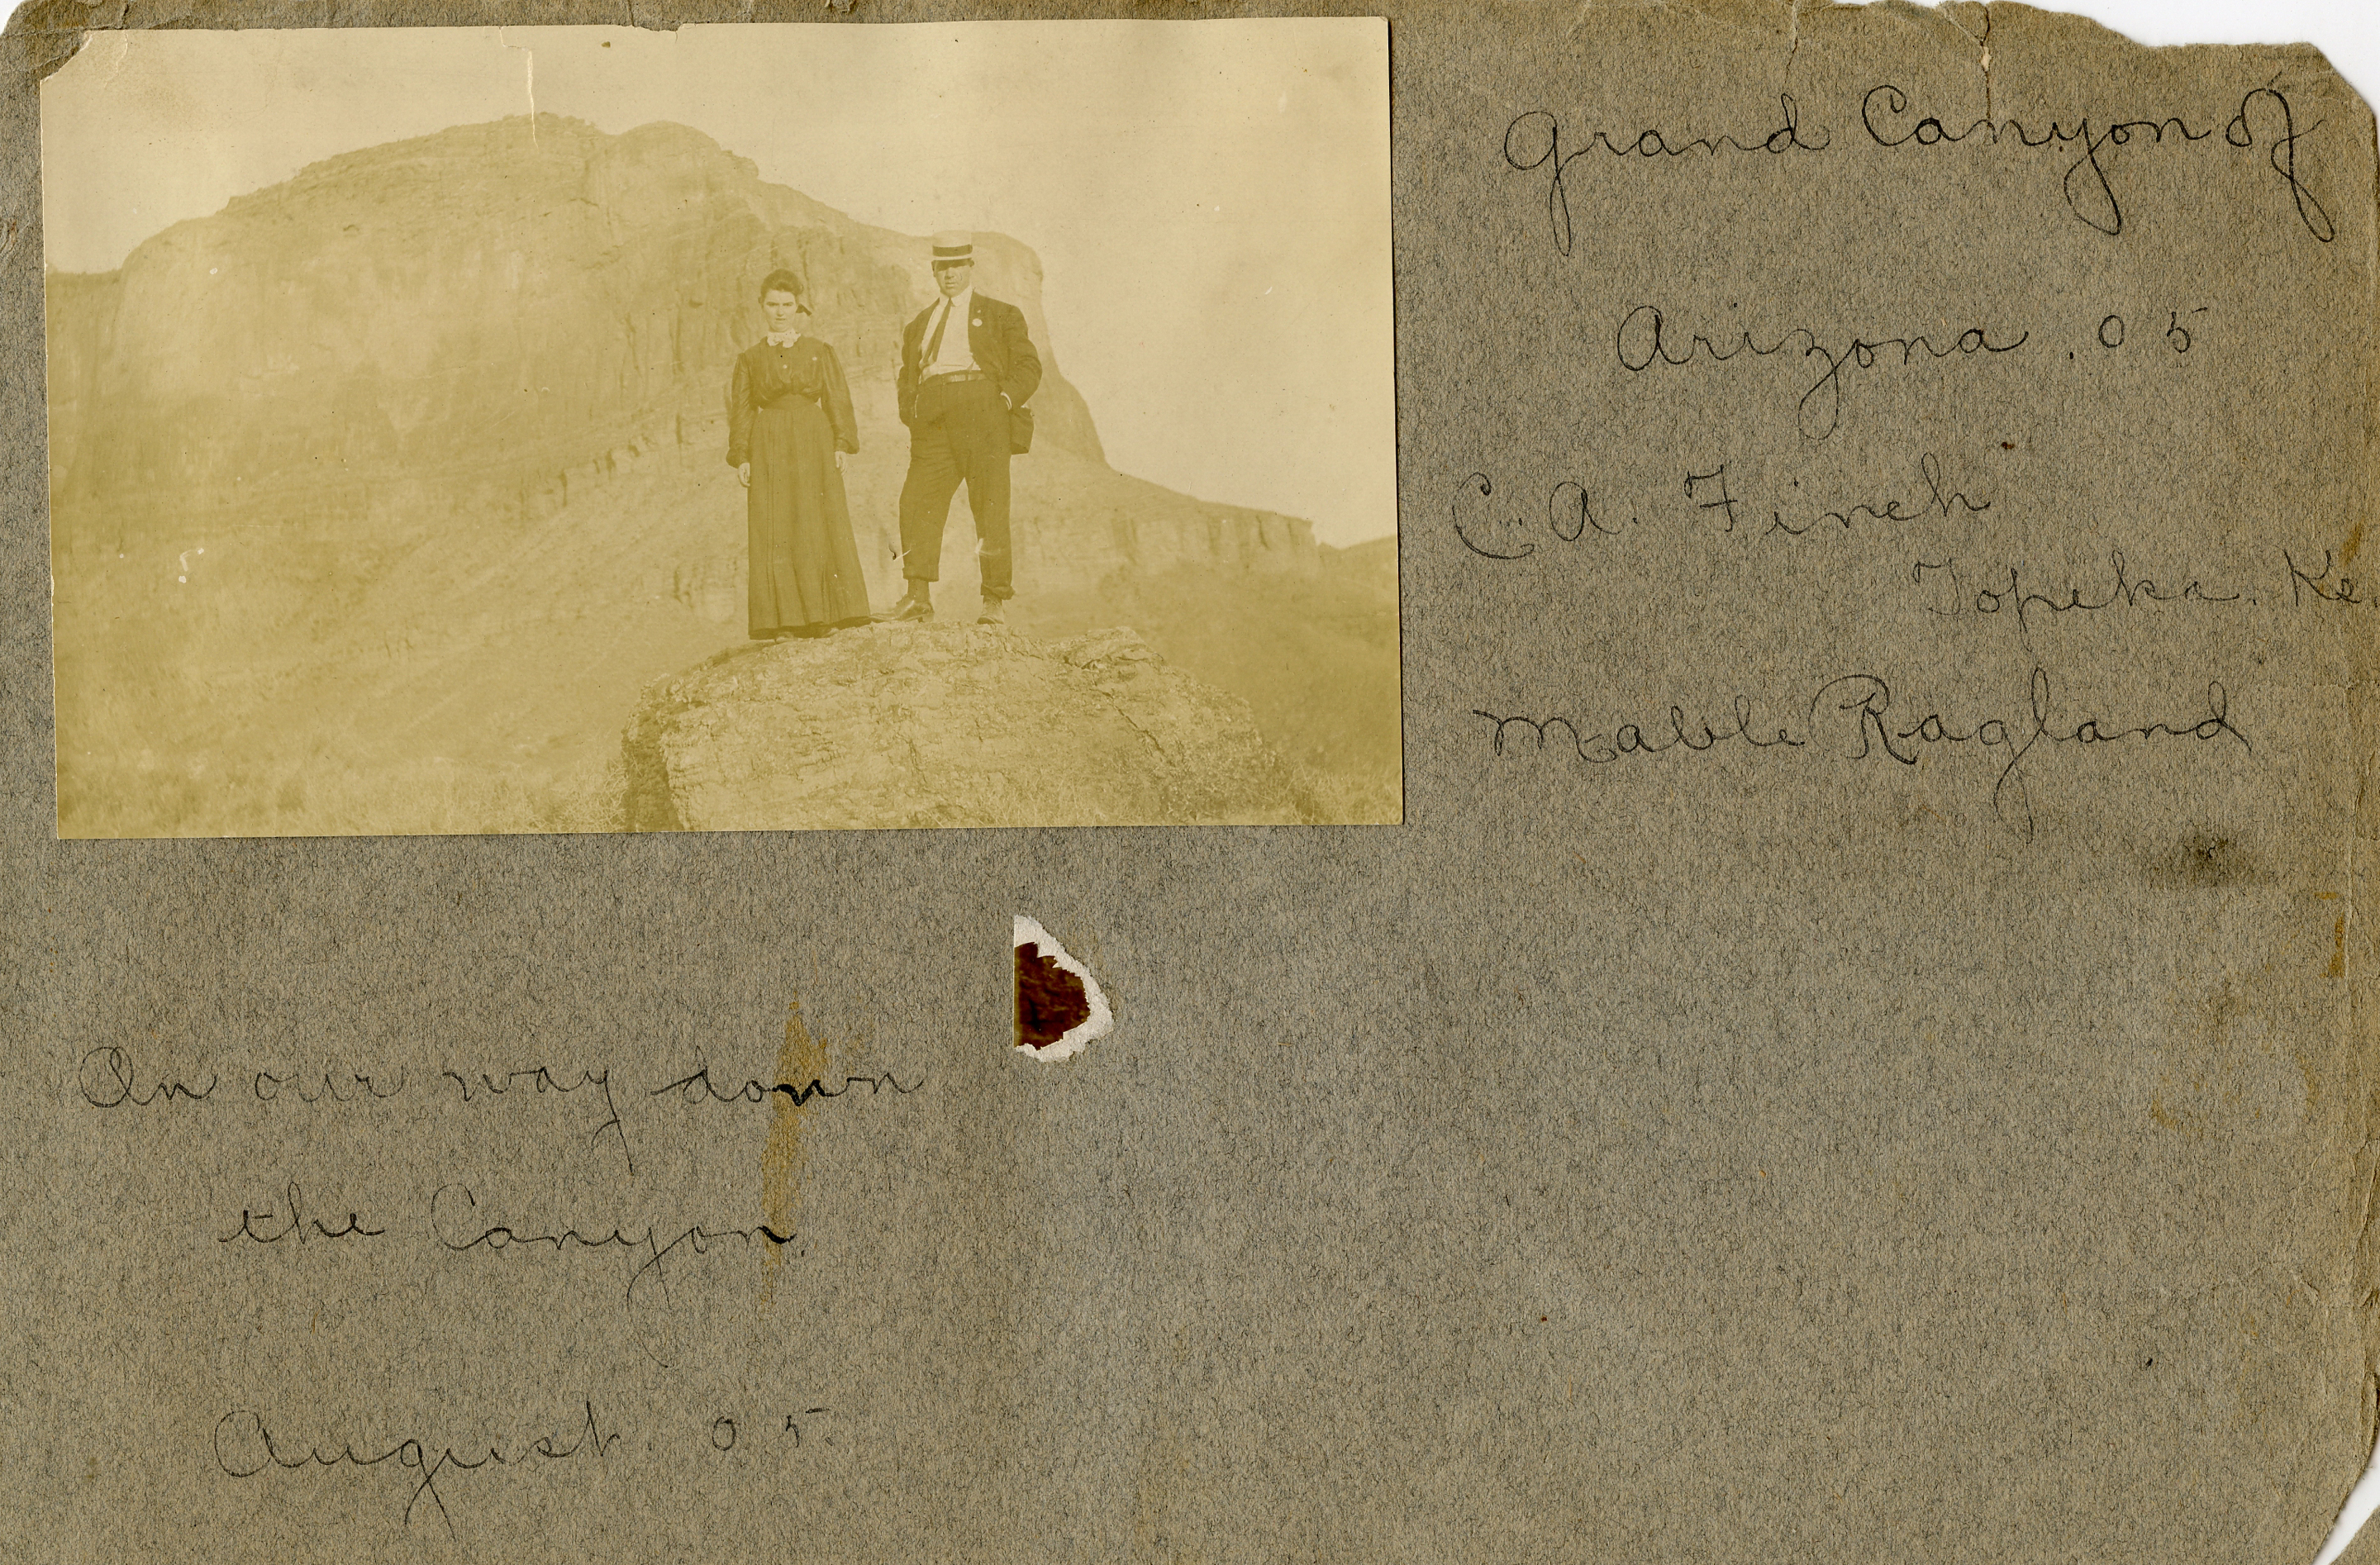 Grand Canyon of
Arizona. 05
C. A. Finch
Topeka. Ks.
Mable Ragland
On our way down
the Canyon.
August. 05.